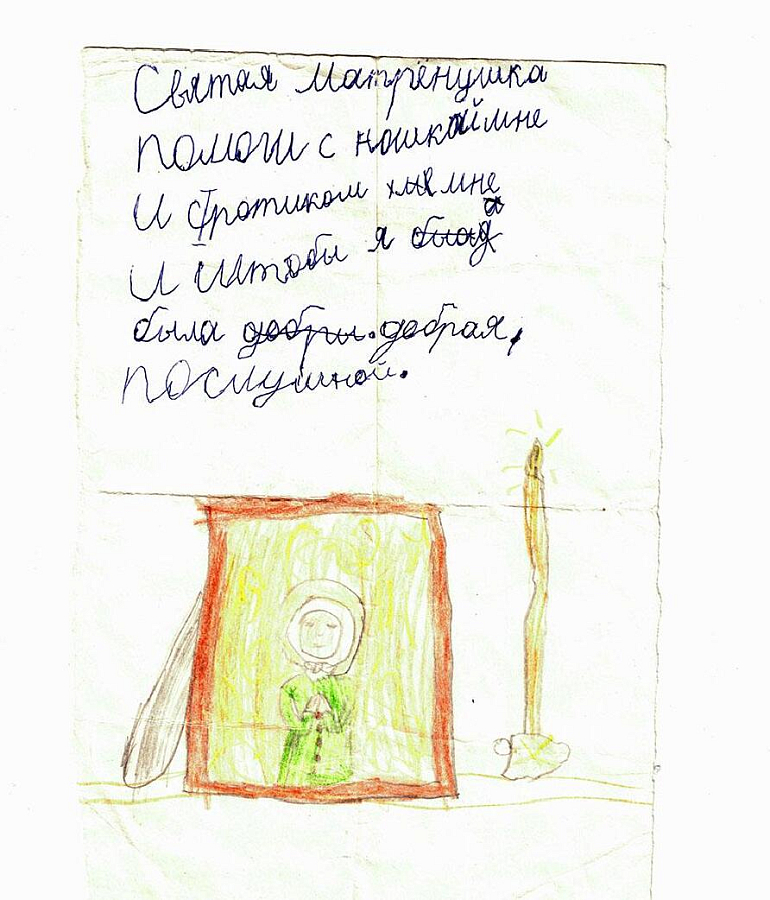 Святая Матрёнушка
Помош с кошкой мне
И братиком мне
И Штобы я
была добрая,
послушной.